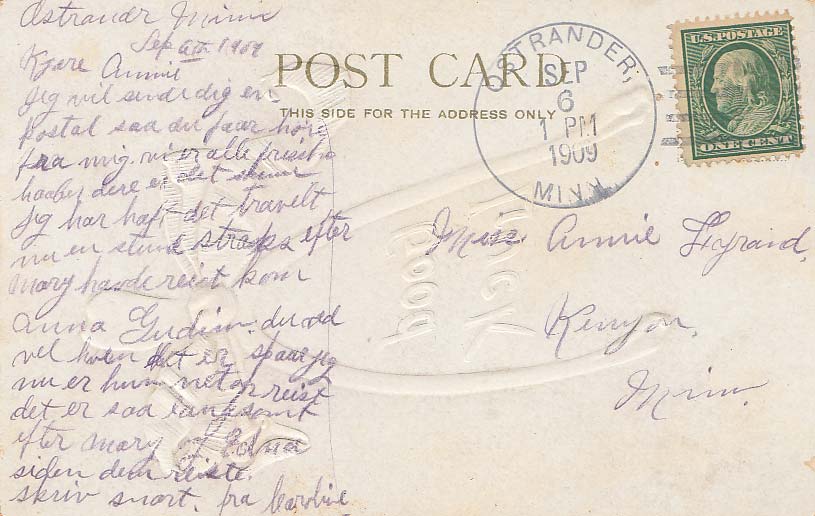 Ostrander Minn
Sep 6th 1909
Kjære Annie
Jeg vil sende dig en
postal saa du faar høre
fra mig. vi er alle friske
haaber dere er det
Jeg har haft det travelt
nu en stund straks efter
Mary havde reist kom
Anna Gudim. du ved
vel hvem det er
nu er hun netop reist
det er saa langsomt
efter Mary og Edna
siden dem reiste.
skriv snart. fra Caroline
POST CARD
THIS SIDE FOR THE ADDRESS ONLY
OSTRANDER,
SEP
6
1 PM
1909
MINN
U.S. POSTAGE
ONE CENT
Miss Annie
Kenyon,
Minn.
GOOD
LUCK